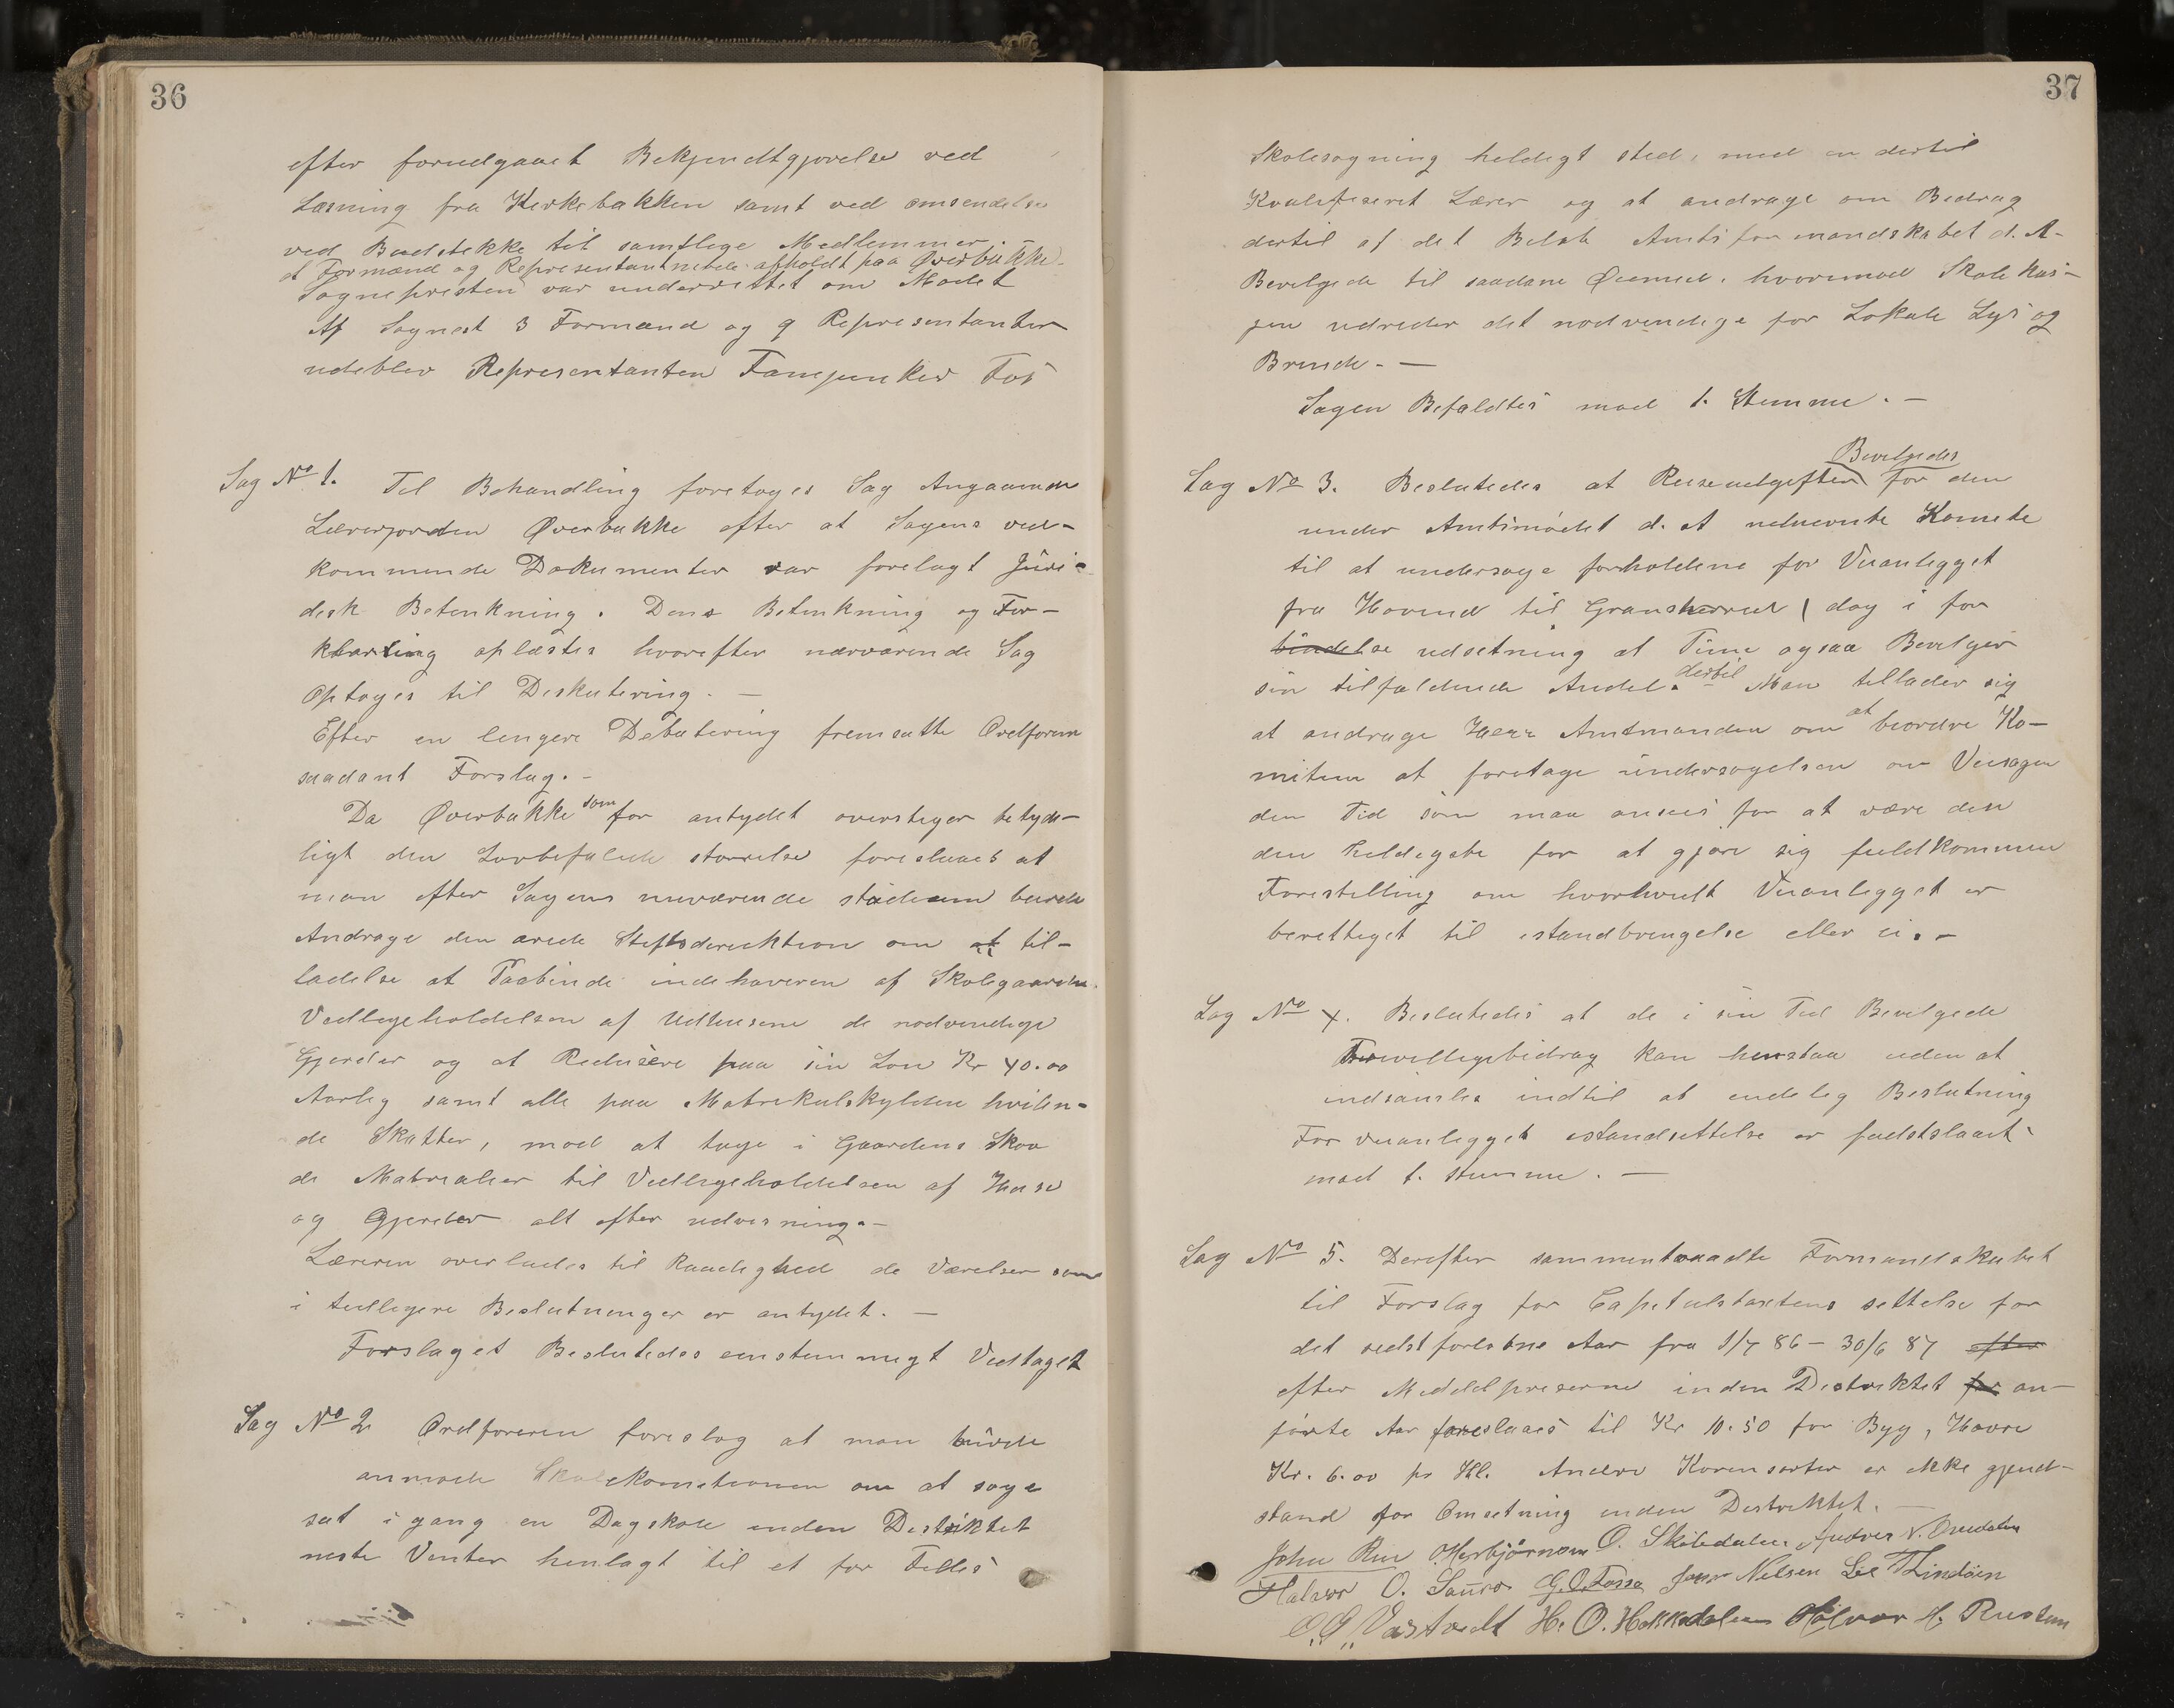 36
efter forudgaaet Bekjendtgjørelse ved
Læsning fra Kirkebakken samt ved omsendelse
ved Budstekke til samtlige Medlemmer
et Formænd og Representantmøde afholdt paa Øverbakke
Sognepresten var underrettet om Mødet
Af Sognest 3 Formænd og 9 Representanter
udeblev Representanten Fanejunker Fos
Sag No 1. Til Behandling foretoges Sag Angaaende
Lærerjorden Øverbakke efter at Sagens ved-
kommende Dokumenter var forelagt Juri-
disk Betenkning. Dens Betenkning og For-
klaring oplæstes hvorefter nærværende Sag
Optoges til Deskutering. —
Efter en lengere Debatering fremsatte Ordforere
saadant Forslag. -
Da Øverbakke som før antydet overstiger betyde-
ligt den Lovbefalede størrelse foreslaaes at
man efter Sagens nuværende stadium burde
Andrage den ærede Stiftsdirektion om at til-
ladelse at Paabinde indehaveren af Skolegaarden
Vedligeholdelsen af Udhusene de nødvendige
Gjerder og at Redusere paa sin Løn Kr 40.00
Aarlig samt alle paa Matrikulskylden hvilen-
de Skatter, mod at tage i Gaardens Skov
de Materialier til Vedligeholdelsen af Huse
og Gjerder alt efter udvisning. -
Læreren overlades til Raadighed de Værelser som
i tidligere Beslutninger er antydet. —
Forslaget Beslutedes enstemmigt Vedtaget
Sag No 2 Ordføreren foreslog at man burde
anmode Skolekomitionen om at søge
sat i gang en Dagskole inden Distriktet
neste Vinter henlagt til et for Felles
37
Skolesøgning heldigt sted, med en dertil
Kvalifiseret Lærer og at andrage om Bedrag
dertil af det Beløb Amtsformandskabet d. A-
Bevilgede til saadane Øiemed. hvorimod Skolekas-
sen udreder det nødvendige for Lokale Lys og
Brende. —
Sagen Befaldtes mod 1. Stemme. —
Sag No 3. Beslutedes at Reiseudgiften Bevilgedes for den
under Amtsmødet d. A udnevnte Komete
til at undersøge forholdene for Veianlegget
fra Hovind til Gransherred dog i for
bindelse udsetning at Tinn ogsaa Bevilger
sin tilfaldende Andel. dertil Man tillader sig
at andrage Herr Amtmanden om at beordre Ko-
miteen at foretage undersøgelsen om Veisagen
den Tid som maa ansees for at være den
den heldigste for at gjøre sig fuldkommen
Forestilling om hvorhvidt Veianlegget er
berettiget til istandbringelse eller ei. -
Sag No 4. Beslutedes at de i sin Tid Bevilgede
Frivilligebidrag kan henstaa uden at
indsamles indtil at endelig Beslutning
For veianlegget istandsettelse er fastslaaet
mod 1. stemme. —
Sag No 5. Derefter sammentraadte Formandskabet
til Forslag for Capitulstaxtens settelse for
det sidst forløbne Aar fra 1/7 86 - 30/6 87 efter
efter Middelpriserne inden Distriktet for an-
førte Aar foreslaaes til Kr 10.50 for Byg, Havre
Kr. 6.00 pr Hl. Andre Kornsorter er ikke gjend-
stand for Omsetning inden Distriktet. —
John Rui O. Herbjørnsen O. Skibedalen Andres N. Ormdalen
Halvor O. O. Fosse Nelsen Lindøin
O. G. Vastveit H. O. Hakkedalen Halvor H. Rustum